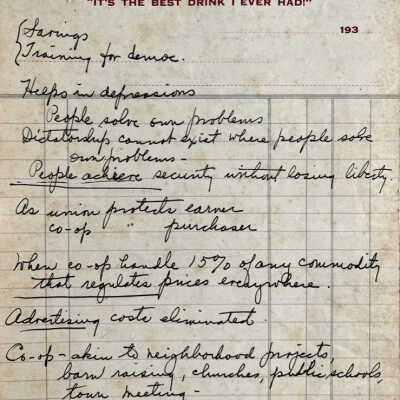 "IT'S THE BEST DRINK I EVER HAD!"
193
Savings
Training for democ.
Helps in depressions
People solve own problems
Dictatorship cannot exist where people solve
own problems -
People achieve security without losing liberty.
As union protects earner
co-op " purchaser
When co-op handle 15% of any commodity
that regulates prices everywhere.
Advertising costs eliminated.
Co-op - akin to neighborhood projects,
barn raising, churches, public schools,
town meeting -